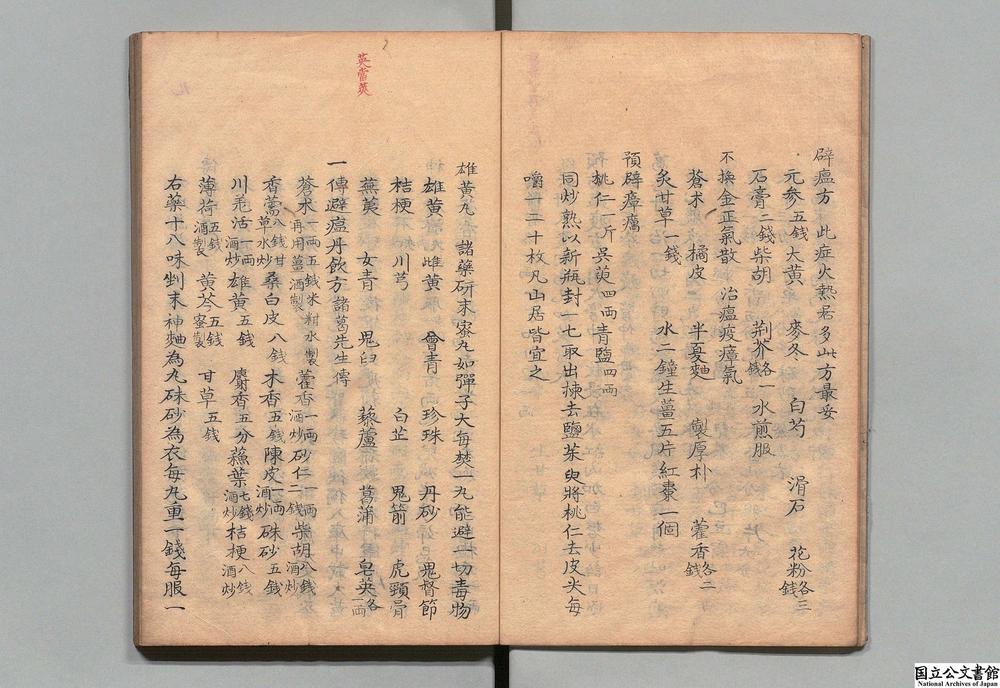 辟瘟方 此症火熱居多此方最妥
元参五錢 大黄 麥冬 白芍 滑石 花粉各三錢
石膏二錢 柴胡 荊芥各一錢 水煎服
不換金正氣散 治瘟疫瘴氣
蒼朮 橘皮 半夏麯 製厚朴 藿香各二錢
炙甘草一錢 水二鐘生薑五片紅棗一個
預辟瘴癘
桃仁一斤 吳萸四兩 青鹽四兩
同炒熟以新瓶封一七取出揀去鹽茱萸將桃仁去皮尖每
嚼一二十枚凡山居皆宜之
英當莢
雄黄丸 諸藥研末蜜丸如彈子大每焚一丸能避一切毒物
雄黄 雌黄 曾青 珍珠 丹砂 鬼督節
桔梗 川芎 白芷 鬼箭 虎頸骨
蕪荑 女青 鬼臼 藜蘆 菖蒲 皂英各一両
一傳避瘟丹飲方 諸葛先生傳
蒼朮一両五錢米泔水製再用薑酒製 藿香一両酒炒 砂仁一両二錢 柴胡八錢酒炒
香薷八錢甘草水炒 桑白皮八錢 木香五錢 陳皮一両酒炒 硃砂五錢
川羌活一両酒炒 雄黄五錢 麝香五分 蘓葉七錢酒炒 桔梗八錢酒炒
薄荷五錢酒製 黄芩五錢蜜製 甘草五錢
右藥十八味剉末神麯為丸硃砂為衣每丸重一錢每服一
国立公文書館
National Archives of Japan